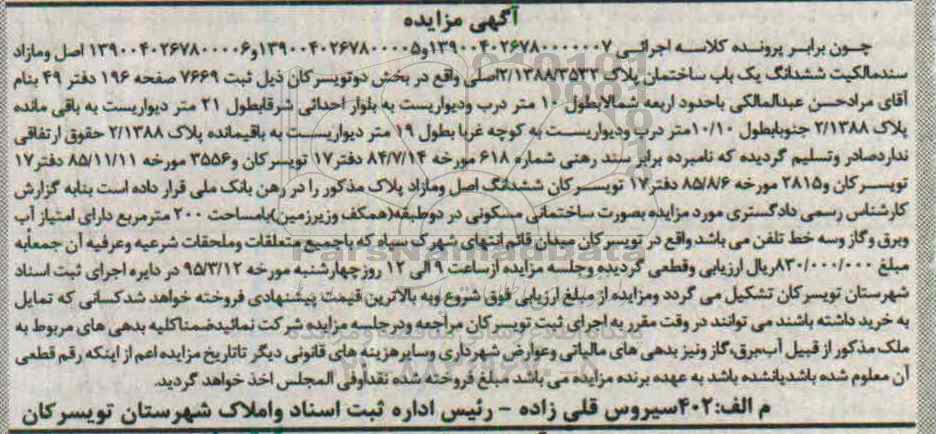 آگهی مزایده
چون برابر پرونده کلاسه اجرائی ۱۳۹۰۰۴۰۲۶۷۸۰۰۰۰۰۰۷و۱۳۹۰۰۴۰۲۶۷۸۰۰۰۰۵و۱۳۹۰۰۴۰۲۶۷۸۰۰۰۰۶ اصل ومازاد
سندمالکیت ششدانگ یک باب ساختمان پلاک ۲/۱۳۸۸/۳۵۳۳اصلی واقع در بخش دوتویسرکان ذیل ثبت ۷۶۶۹ صفحه ۱۹۶ دفتر ۴۹ بنام
آقای مرادحسن عبدالمالکی باحدود اربعه شمالابطول ۱۰ متر درب ودیواریست به بلوار احداثی شرقابطول ۲۱ متر دیواریست به باقی مانده
پلاک ۲/۱۳۸۸ جنوبابطول ۱۰/۱۰متر درب ودیواریست به کوچه غربا بطول ۱۹ متر دیواریست به باقیمانده پلاک ۲/۱۳۸۸ حقوق ارتفاقی
نداردصادر وتسلیم گردیده که نامبرده برابر سند رهنی شماره ۶۱۸ مورخه ۸۴/۷/۱۴ دفتر۱۷ تویسرکان و۳۵۵۶ مورخه ۸۵/۱۱/۱۱ دفتر۱۷
تویسرکان و۲۸۱۵ مورخه ۸۵/۸/۶ دفتر۱۷ تویسرکان ششدانگ اصل ومازاد پلاک مذکور را در رهن بانک ملی قرار داده است بنابه گزارش
کارشناس رسمی دادگستری مورد مزایده بصورت ساختمانی مسکونی در دوطبقه(همکف وزیرزمین)بامساحت ۲۰۰ مترمربع دارای امتیاز آب
وبرق وگاز وسه خط تلفن می باشد واقع در تویسرکان میدان قائم انتهای شهرک سپاه که باجمیع متعلقات وملحقات شرعیه وعرفیه آن جمعابه
مبلغ ۸۳۰/۰۰۰/۰۰۰ریال ارزیابی وقطعی گردیده وجلسه مزایده ازساعت ۹ الی ۱۲ روزچهارشنبه مورخه ۹۵/۳/۱۲ در دایره اجرای ثبت اسناد
شهرستان تویسرکان تشکیل می گردد ومزایده از مبلغ ارزیابی فوق شروع وبه بالاترین قیمت پیشنهادی فروخته خواهد شدکسانی که تمایل
به خرید داشته باشند می توانند در وقت مقرر به اجرای ثبت تویسرکان مراجعه ودرجلسه مزایده شرکت نمائیدضمناکلیه بدهی های مربوط به
ملک مذکور از قبیل آب،برق،گاز ونیز بدهی های مالیاتی وعوارض شهرداری وسایرهزینه های قانونی دیگر تاتاریخ مزایده اعم از اینکه رقم قطعی
آن معلوم شده باشدیانشده باشد به عهده برنده مزایده می باشد مبلغ فروخته شده نقداوفی المجلس اخذ خواهد گردید.
م الف:۴۰۲سیروس قلی زاده - رئیس اداره ثبت اسناد واملاک شهرستان تویسرکان
ParsNamadData